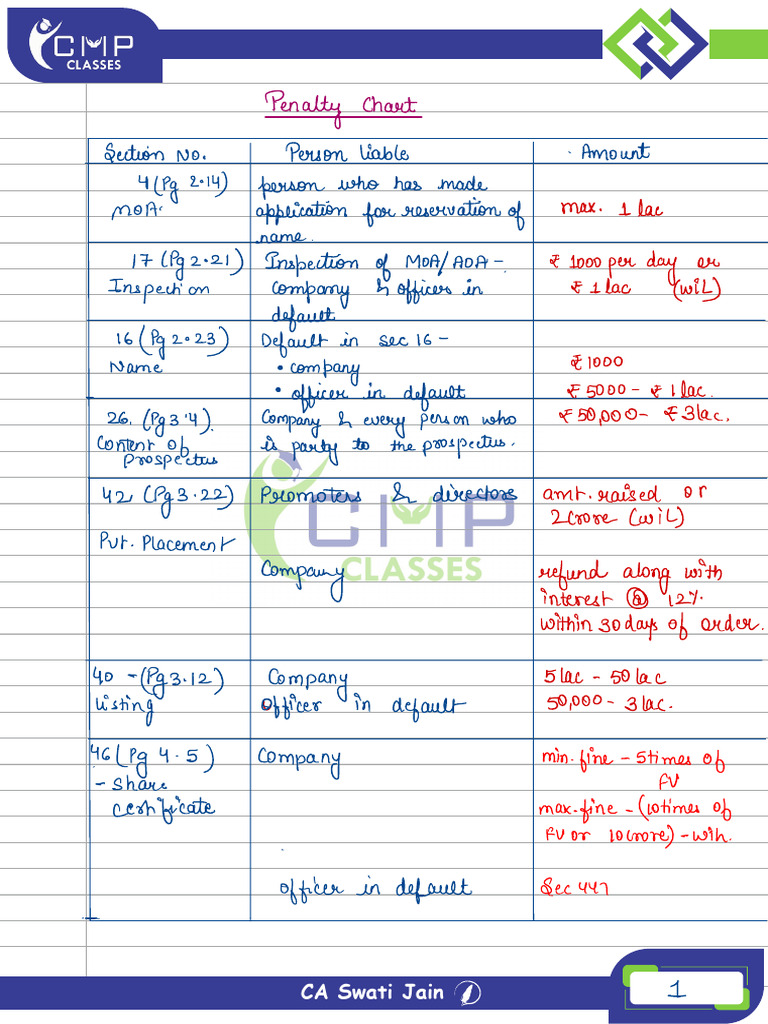 CMP
CLASSES
Penalty Chart
Section No. Person liable Amount
4 (Pg 2.14) person who has made
MOA. application for reservation of max. 1 lac
name.
17 (Pg 2.21) Inspection of MOA/AOA - ₹ 1000 per day or
Inspection company & officer in ₹ 1 lac (WIL)
default
16 (Pg 2.23) Default in sec 16 -
Name • company ₹1000
• officer in default ₹ 5000 - ₹ 1 lac.
26. (Pg 3.4). Company & every person who ₹ 50,000 - ₹ 3 lac.
Content of is party to the prospectus.
Prospectus
42 (Pg 3.22) Promoters & directors amt. raised or
2 crore (WIL)
CMP
Pvt. Placement
Company refund along with
CLASSES
interest @ 12%
within 30 days of order.
40 - (Pg 3.12) Company 5 lac - 50 lac
Listing Officer in default 50,000 - 3 lac.
46 (Pg 4.5) Company min. fine - 5 times of
- Share FV
certificate max. fine - (10 times of
FV or 10 crore) - wih.
officer in default Sec 447
CA Swati Jain
1